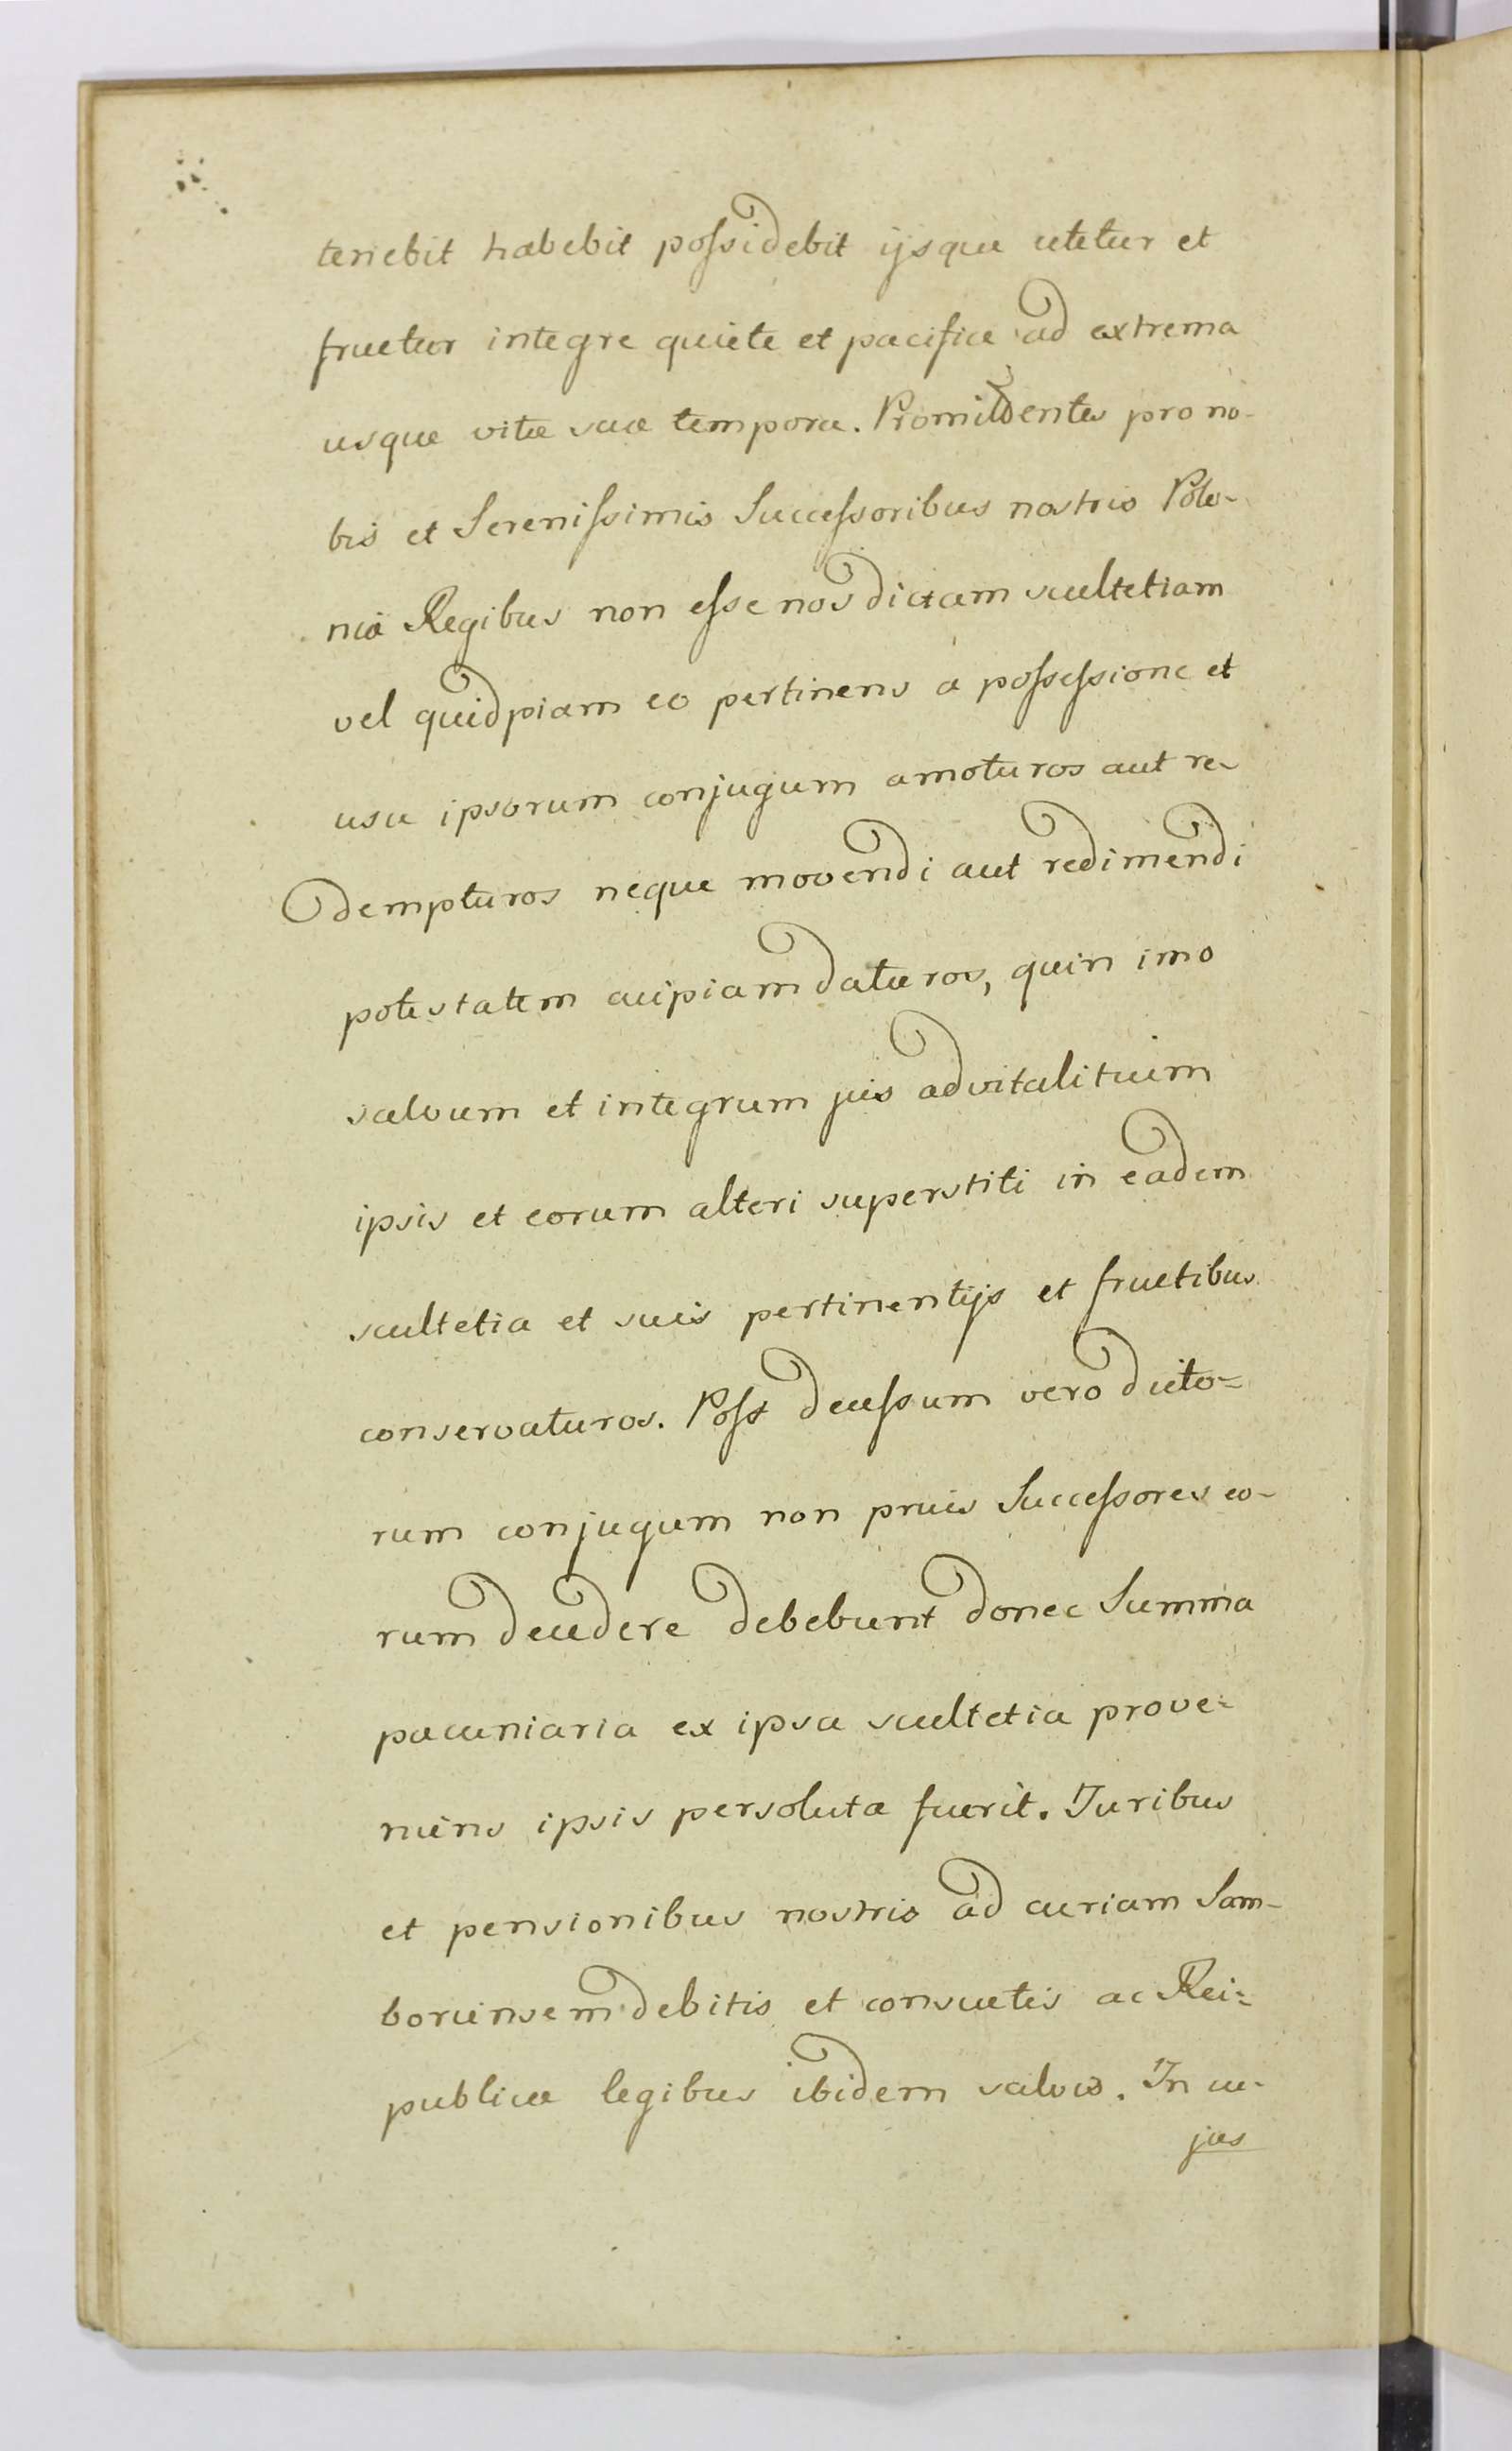 tenebit habebit possidebit ijsque utetur et
fruetur integre quiete et pacifice ad extrema
usque vitæ suæ tempora. Promittentes pro no-
bis et Serenissimis Successoribus nostris Polo-
niæ Regibus non esse nos dictam scultetiam
vel quidpiam eo pertinens a possessione et
usu ipsorum conjugum amoturos aut re-
dempturos neque movendi aut redimendi
potestatem cuipiam daturos, quin imo
salvum et integrum jus advitalitium
ipsis et eorum alteri superstiti in eadem
scultetia et suis pertinentijs et fructibus
conservaturos. Post decessum vero dicto=
rum conjugum non prius Successores eo-
rum decedere debebunt donec Summa
pecuniaria ex ipsa scultetia prove=
niens ipsis persoluta fuerit. Juribus
et pensionibus nostris ad curiam Sam-
boriensem debitis et consuetis ac Rei=
publicæ legibus ibidem salvis. In cu-
jus